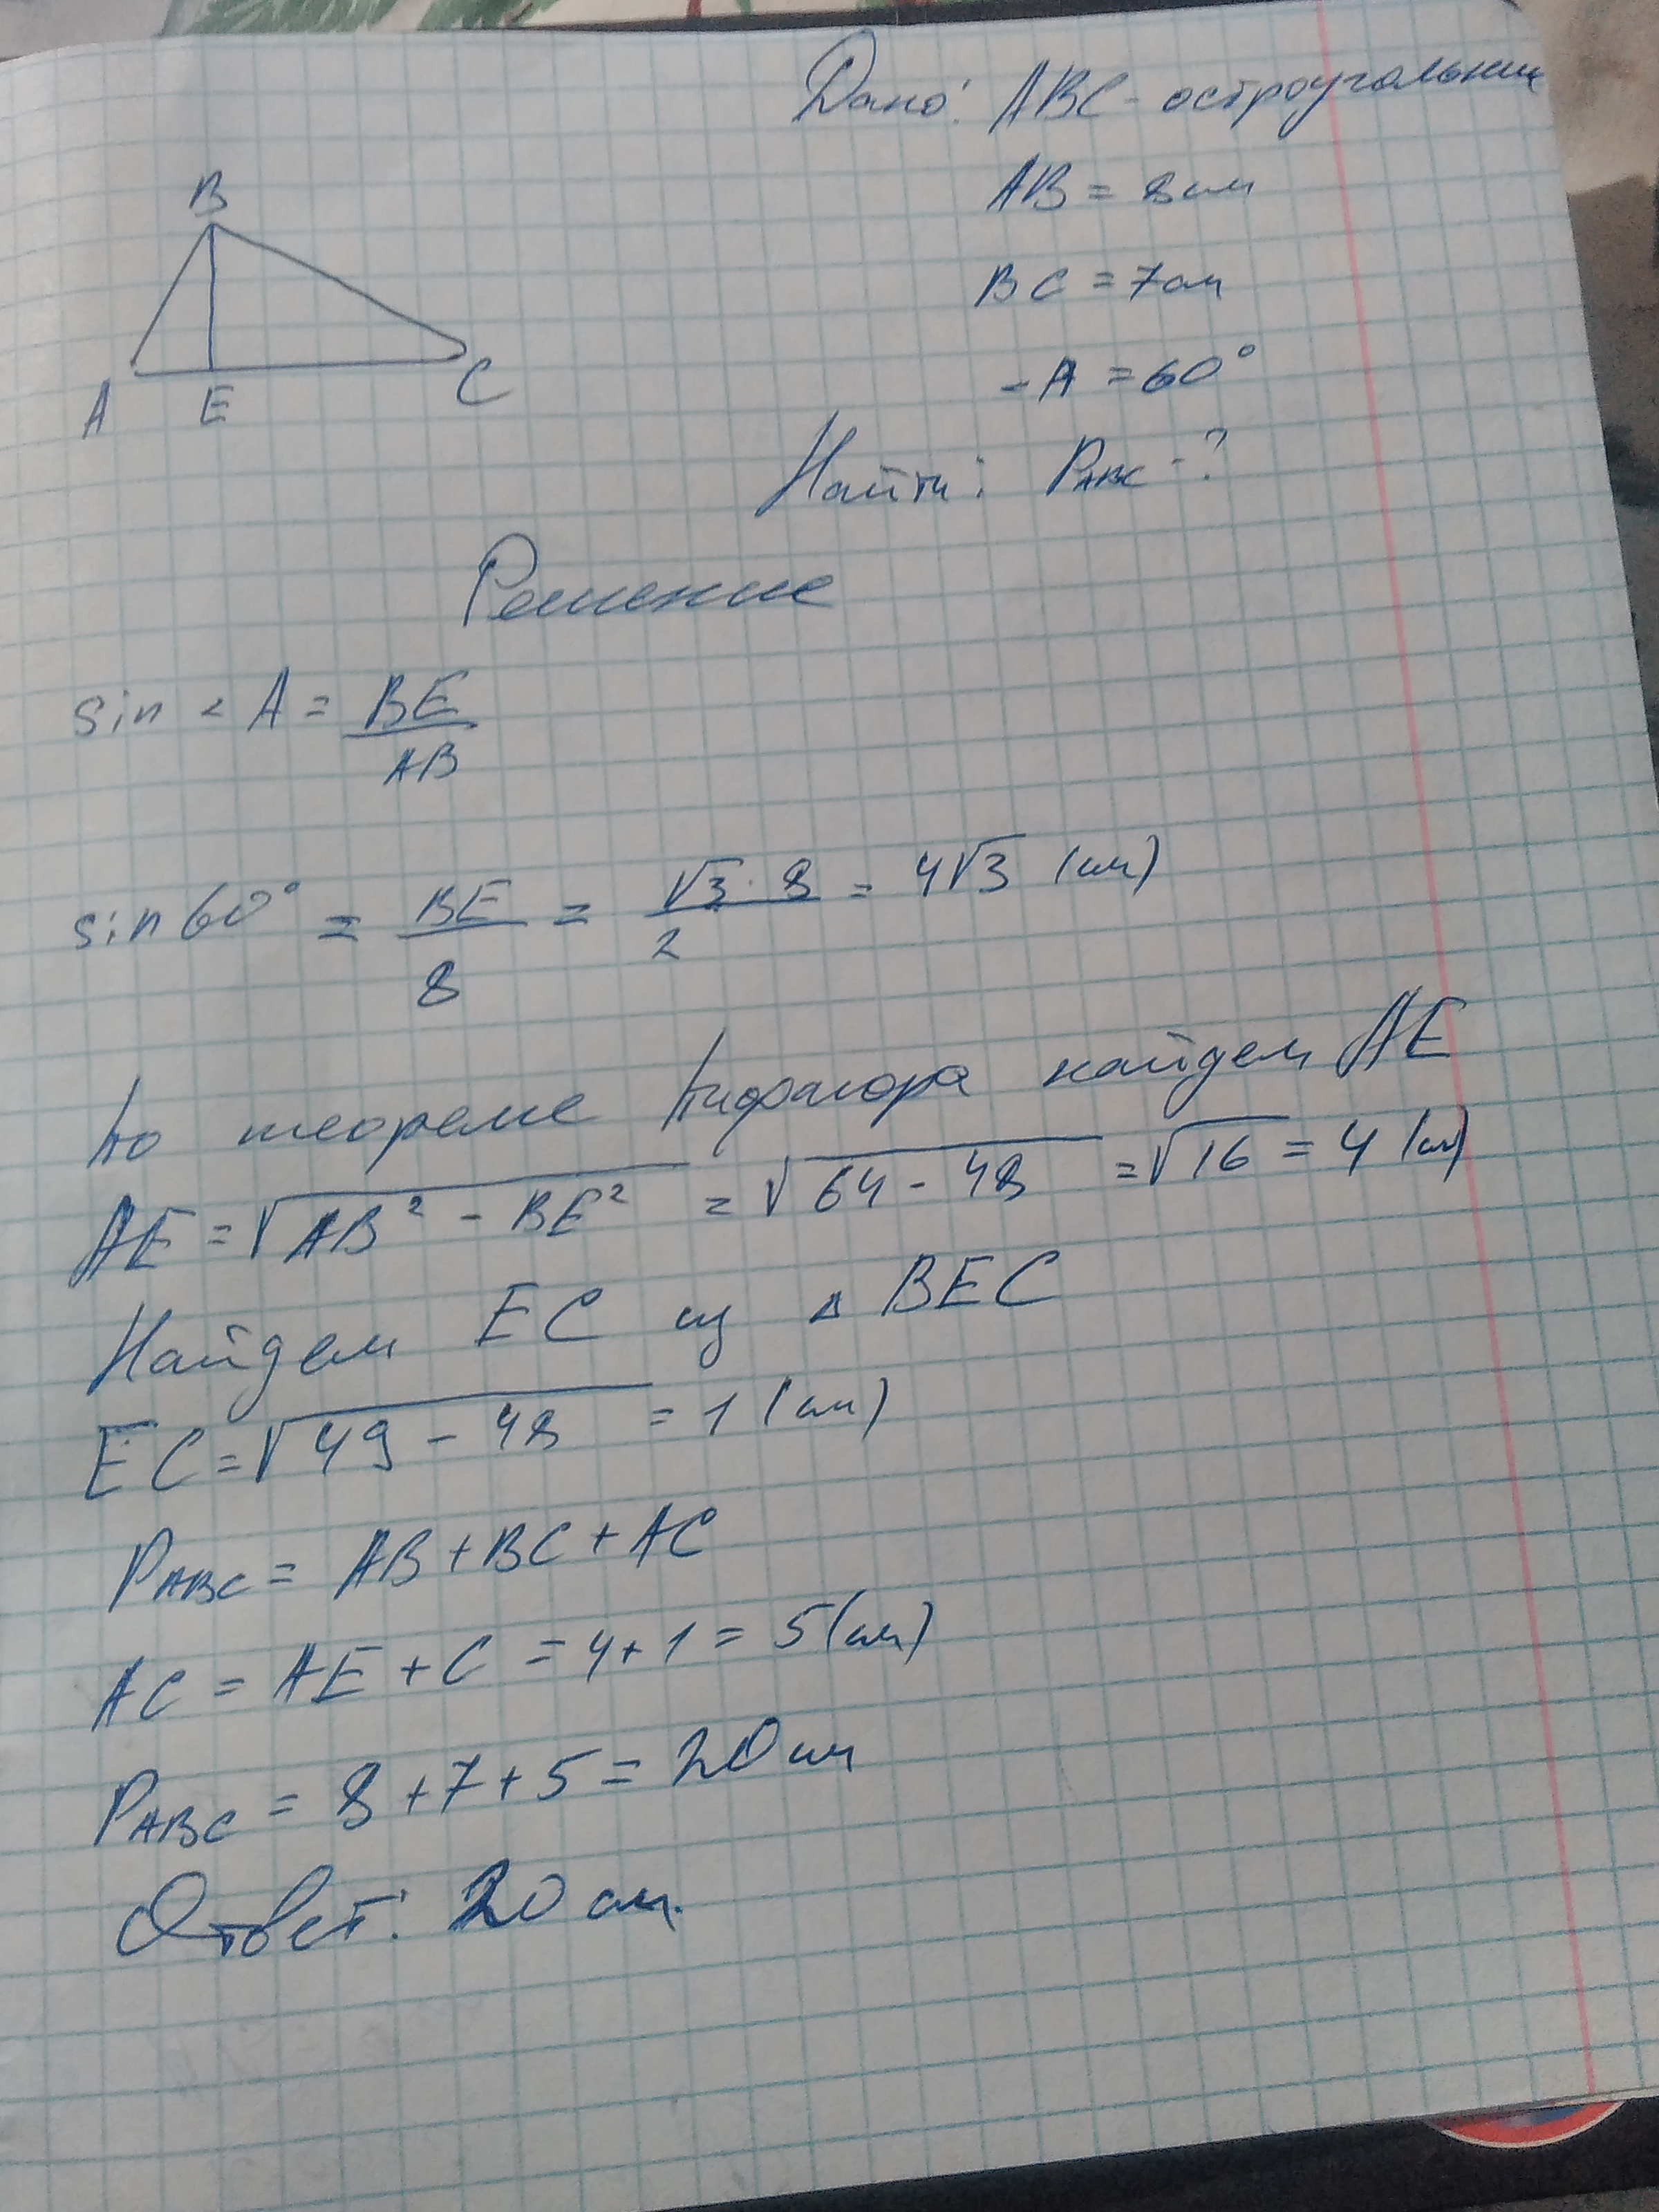 Дано: ABC - остроугольник
AB = 8 см
BC = 7 см
∠A = 60°
Найти: P_ABC - ?
B
A E C
Решение
sin ∠A = BE/AB
sin 60° = BE/8 = √3·8/2 = 4√3 (см)
По теореме Пифагора найдем AE
AE = √(AB² - BE²) = √(64 - 48) = √16 = 4 (см)
Найдем EC из △ BEC
EC = √(49 - 48) = 1 (см)
P_ABC = AB + BC + AC
AC = AE + C = 4 + 1 = 5 (см)
P_ABC = 8 + 7 + 5 = 20 см
Ответ: 20 см.